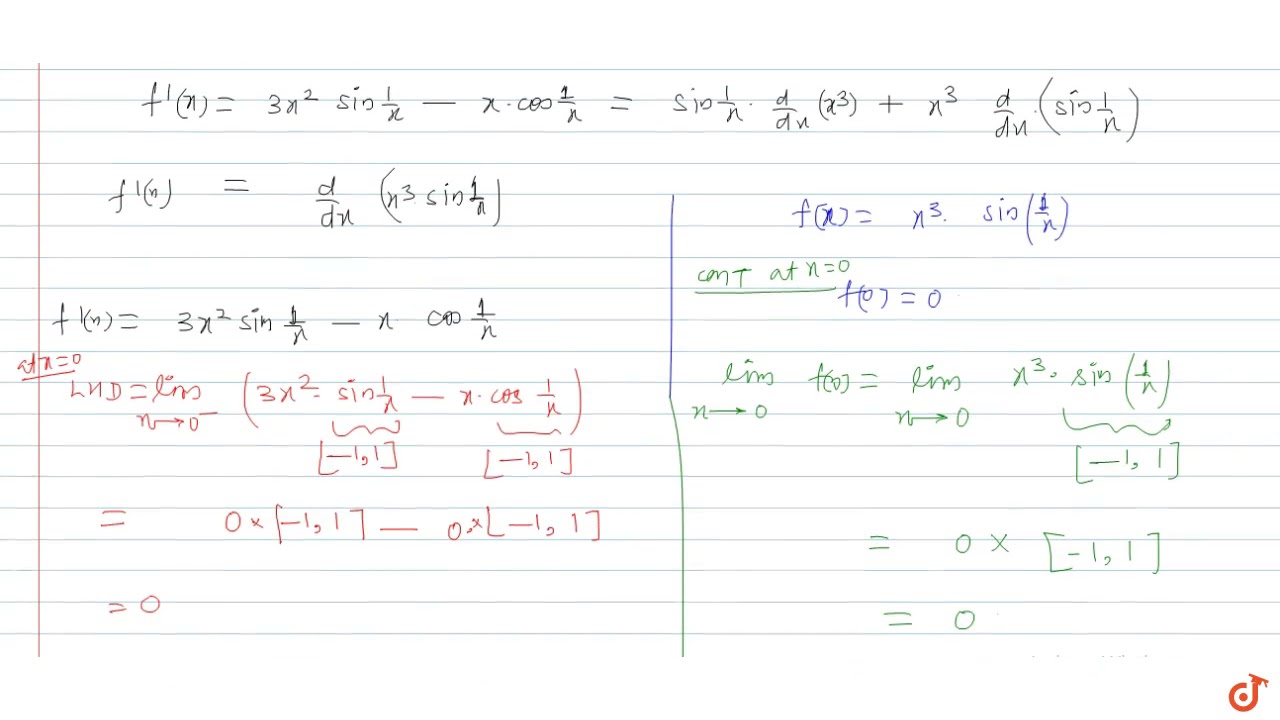 f'(x) = 3x² sin 1/x — x·cos 1/x = sin 1/x · d/dx (x³) + x³ d/dx·(sin 1/x)
f'(x) = d/dx (x³·sin 1/x)
f'(x) = 3x² sin 1/x — x cos 1/x
at x=0
LHD = lim x→0⁻ (3x²· sin 1/x — x·cos 1/x)
[-1,1] [-1,1]
= 0×[-1,1] — 0×[-1,1]
= 0
f(x) = x³· sin(1/x)
conT at x=0
f(0) = 0
lim x→0 f(0) = lim x→0 x³· sin(1/x)
[-1, 1]
= 0 × [-1, 1]
= 0